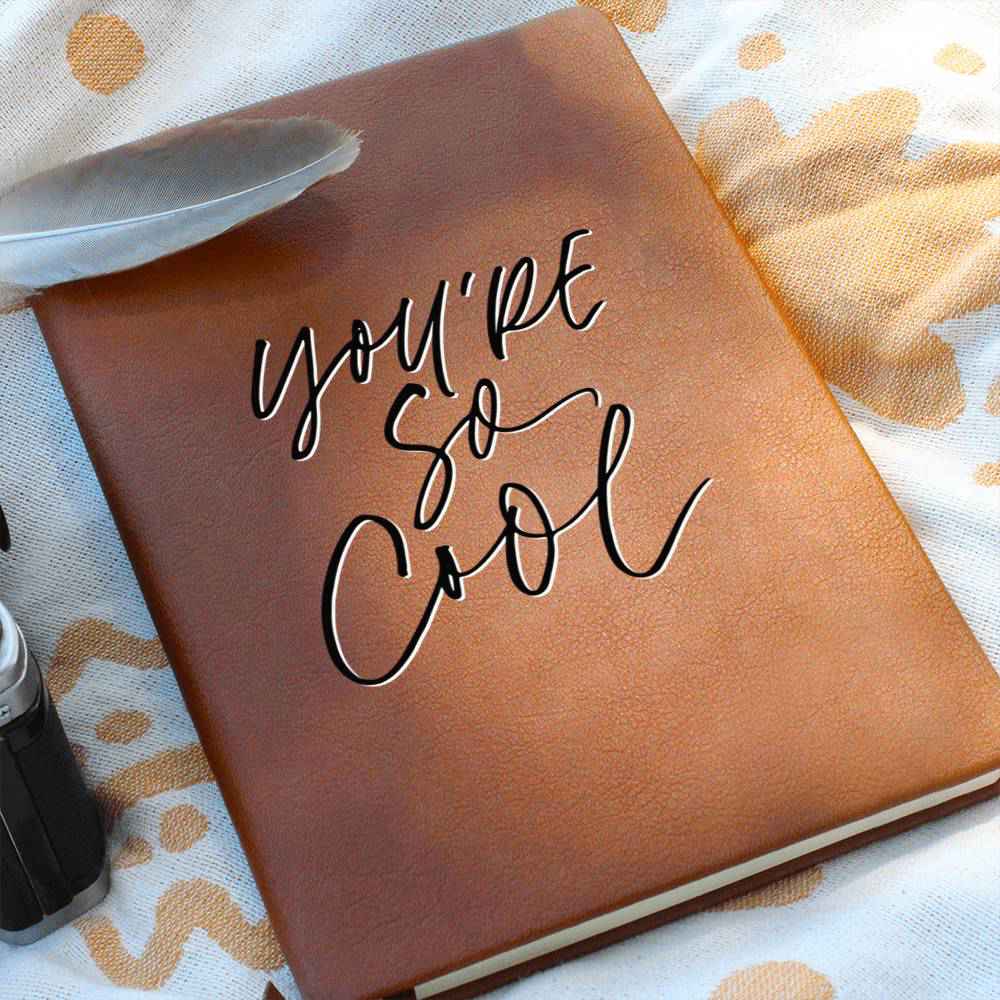 YOU'RE
SO
COOL